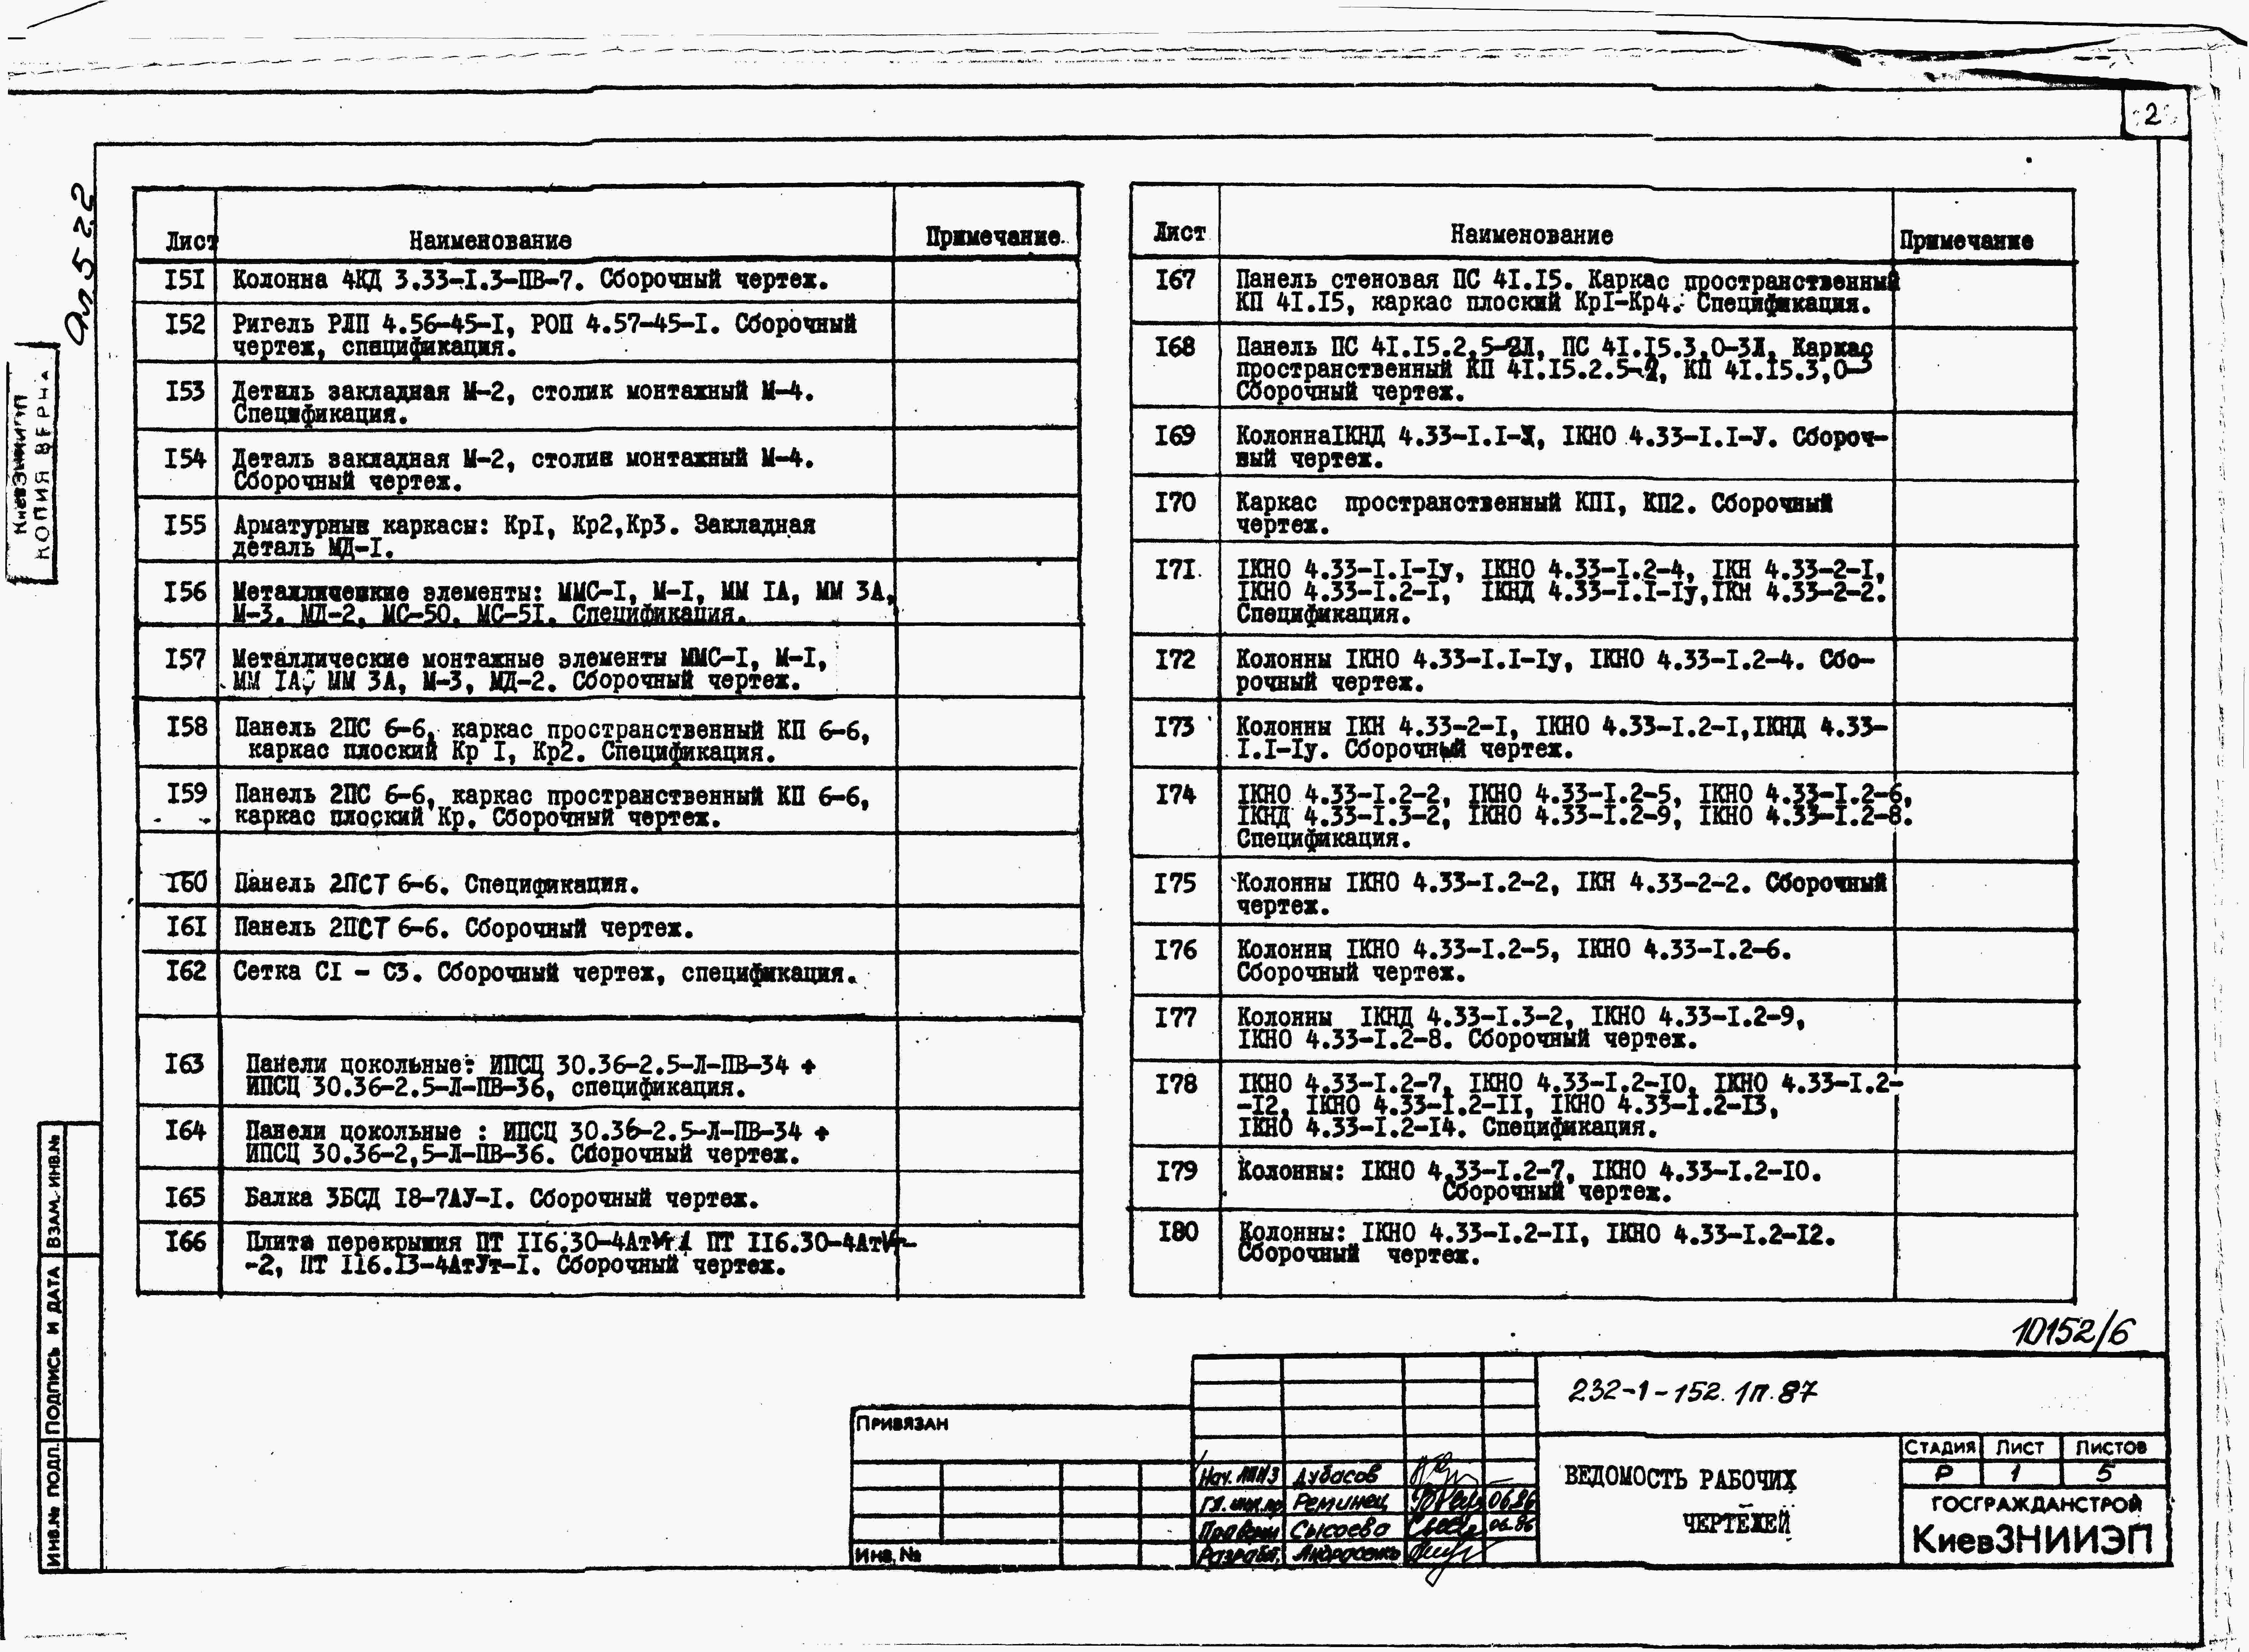 2
Ал. 5 2.2
КиевЗНИИЭП
КОПИЯ ВЕРНА
Лист Наименование Примечание
I5I Колонна 4КД 3.33-I.3-ПВ-7. Сборочный чертеж.
I52 Ригель РЛП 4.56-45-I, РОП 4.57-45-I. Сборочный
чертеж, спецификация.
I53 Деталь закладная М-2, столик монтажный М-4.
Спецификация.
I54 Деталь закладная М-2, столик монтажный М-4.
Сборочный чертеж.
I55 Арматурные каркасы: КрI, Кр2,Кр3. Закладная
деталь МД-I.
I56 Металлические элементы: ММС-I, М-I, ММ IА, ММ 3А,
М-3. МД-2, МС-50, МС-5I. Спецификация.
I57 Металлические монтажные элементы ММС-I, М-I,
ММ IА, ММ 3А, М-3, МД-2. Сборочный чертеж.
I58 Панель 2ПС 6-6, каркас пространственный КП 6-6,
каркас плоский Кр I, Кр2. Спецификация.
I59 Панель 2ПС 6-6, каркас пространственный КП 6-6,
каркас плоский Кр. Сборочный чертеж.
I60 Панель 2ПСТ 6-6. Спецификация.
I6I Панель 2ПСТ 6-6. Сборочный чертеж.
I62 Сетка СI - С3. Сборочный чертеж, спецификация.
I63 Панели цокольные: ИПСЦ 30.36-2.5-Л-ПВ-34 +
ИПСЦ 30.36-2.5-Л-ПВ-36, спецификация.
I64 Панели цокольные : ИПСЦ 30.36-2.5-Л-ПВ-34 +
ИПСЦ 30.36-2,5-Л-ПВ-36. Сборочный чертеж.
I65 Балка 3БСД I8-7АУ-I. Сборочный чертеж.
I66 Плита перекрытия ПТ II6.30-4Ат ПТ II6.30-4Ат
-2, ПТ II6.I3-4АтУт-I. Сборочный чертеж.
Лист Наименование Примечание
I67 Панель стеновая ПС 4I.I5. Каркас пространственный
КП 4I.I5, каркас плоский КрI-Кр4. Спецификация.
I68 Панель ПС 4I.I5.2,5-2Л, ПС 4I.I5.3,0-3Л, Каркас
пространственный КП 4I.I5.2.5-2, КП 4I.I5.3,0-3
Сборочный чертеж.
I69 КолоннаIКНД 4.33-I.I-У, IКНО 4.33-I.I-У. Сбороч-
ный чертеж.
I70 Каркас пространственный КПI, КП2. Сборочный
чертеж.
I7I. IКНО 4.33-I.I-Iу, IКНО 4.33-I.2-4, IКН 4.33-2-I,
IКНО 4.33-I.2-I, IКНД 4.33-I.I-Iу,IКН 4.33-2-2.
Спецификация.
I72 Колонны IКНО 4.33-I.I-Iу, IКНО 4.33-I.2-4. Сбо-
рочный чертеж.
I73 Колонны IКН 4.33-2-I, IКНО 4.33-I.2-I,IКНД 4.33-
I.I-Iу. Сборочный чертеж.
I74 IКНО 4.33-I.2-2, IКНО 4.33-I.2-5, IКНО 4.33-I.2-6,
IКНД 4.33-I.3-2, IКНО 4.33-I.2-9, IКНО 4.33-I.2-8.
Спецификация.
I75 Колонны IКНО 4.33-I.2-2, IКН 4.33-2-2. Сборочный
чертеж.
I76 Колонны IКНО 4.33-I.2-5, IКНО 4.33-I.2-6.
Сборочный чертеж.
I77 Колонны IКНД 4.33-I.3-2, IКНО 4.33-I.2-9,
IКНО 4.33-I.2-8. Сборочный чертеж.
I78 IКНО 4.33-I.2-7, IКНО 4.33-I.2-I0, IКНО 4.33-I.2-
-I2, IКНО 4.33-I.2-II, IКНО 4.33-I.2-I3,
IКНО 4.33-I.2-I4. Спецификация.
I79 Колонны: IКНО 4.33-I.2-7, IКНО 4.33-I.2-I0.
Сборочный чертеж.
I80 Колонны: IКНО 4.33-I.2-II, IКНО 4.33-I.2-I2.
Сборочный чертеж.
10152/6
ИНВ.№ ПОДЛ. ПОДПИСЬ И ДАТА ВЗАМ. ИНВ.№
ПРИВЯЗАН
ИНВ. №
Нач. Дубасов
Гл. инж. пр Реминец 06.86
Провери Сысоева 06.86
Разраб.
232-1-152.1п.87
ВЕДОМОСТЬ РАБОЧИХ
ЧЕРТЕЖЕЙ
СТАДИЯ ЛИСТ ЛИСТОВ
Р 1 5
ГОСГРАЖДАНСТРОЙ
КиевЗНИИЭП